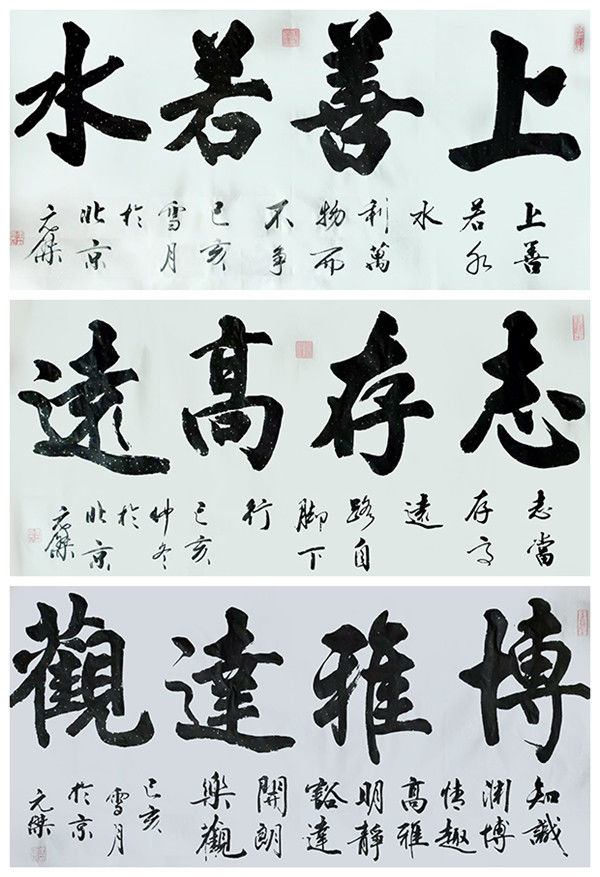 上善若水
上善
若水
水
利萬
物而
不爭
己亥
雪月
於
北京
元傑
志存高遠
志當
存高
遠
路自
脚下
行
己亥
仲冬
於
北京
元傑
博雅達觀
知識
渊博
情趣
高雅
明靜
豁達
開朗
樂觀
己亥
雪月
於京
元傑